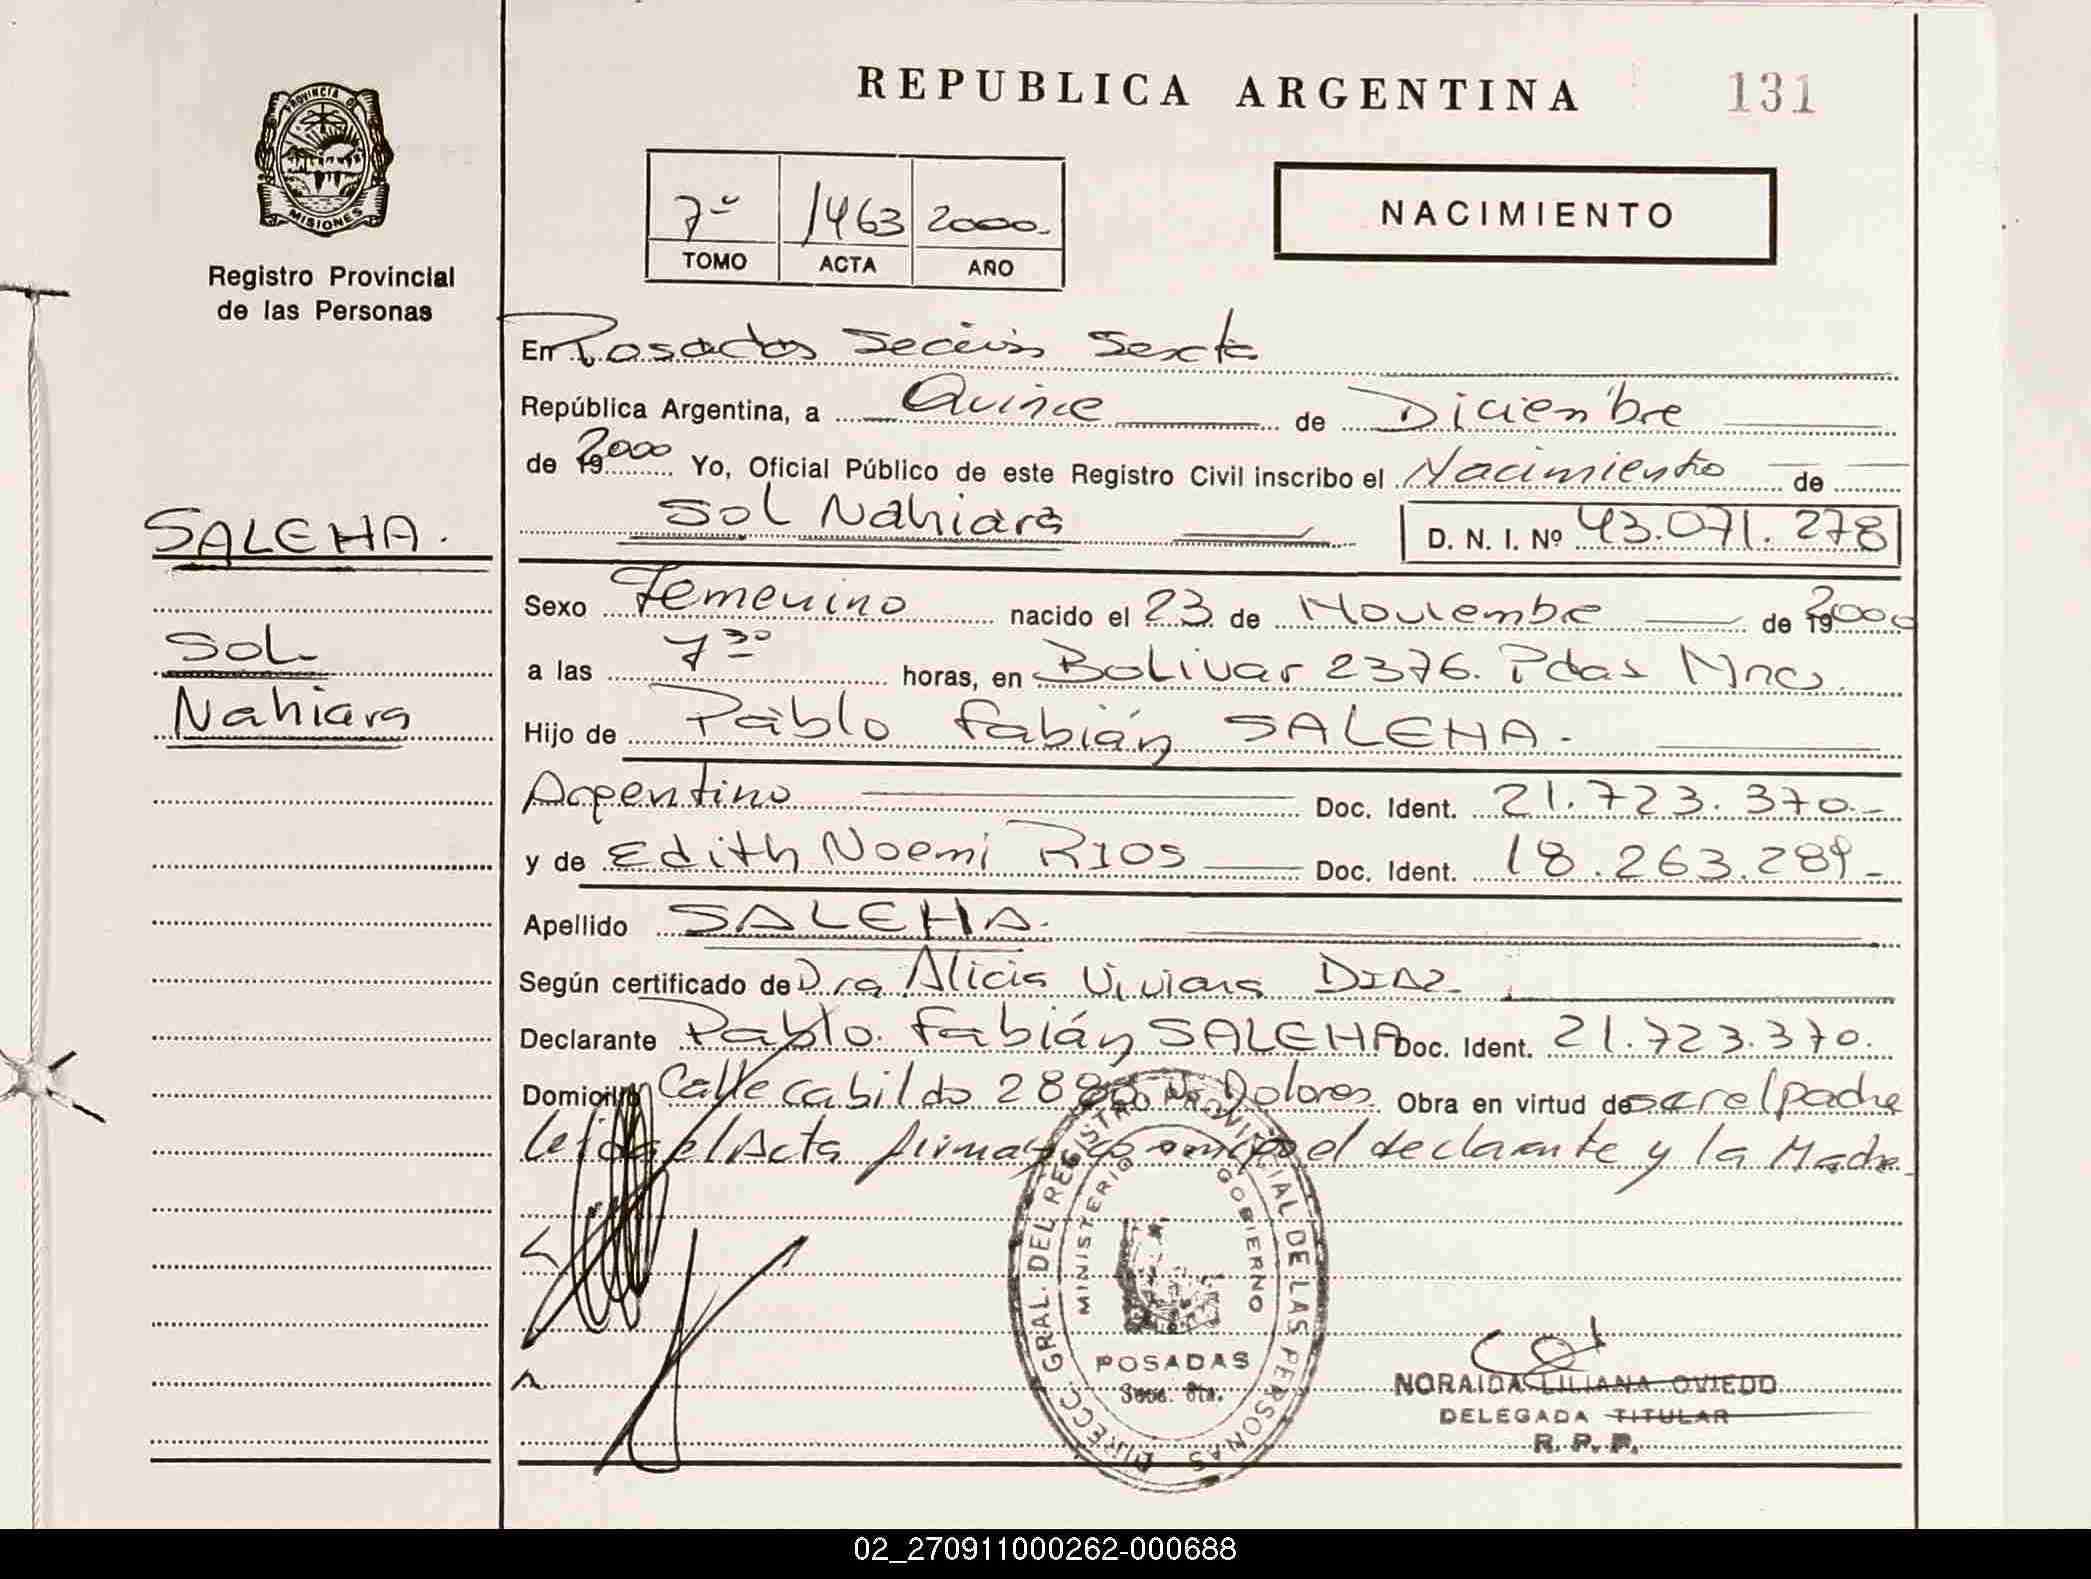 REPUBLICA ARGENTINA
131
PROVINCIA DE
MISIONES
Registro Provincial
de las Personas
7º 1463 2000.
TOMO ACTA AÑO
NACIMIENTO
En Posadas Sección Sexta
República Argentina, a Quince de Diciembre
de 19 2000 Yo, Oficial Público de este Registro Civil inscribo el Nacimiento de
Sol Nahiara D. N. I. Nº 43.071.278
SALEHA.
Sol
Nahiara
Sexo Femenino nacido el 23 de Noviembre de 19 2000
a las 7 30 horas, en Bolivar 2376. Pdas Mnes
Hijo de Pablo Fabián SALEHA.-
Argentino Doc. Ident. 21.723.370.-
y de Edith Noemi RIOS Doc. Ident. 18.263.289-
Apellido SALEHA.
Según certificado de Dra Alicia Viviana DIAZ
Declarante Pablo Fabián SALEHA Doc. Ident. 21.723.370.
Domicilio Calle Cabildo 2880 Dolores Obra en virtud de ser el padre
leida el Acta firman el declarante y la Madre
DIRECC. GRAL. DEL REGISTRO PROVINCIAL DE LAS PERSONAS
MINISTERIO GOBIERNO
POSADAS
Secc. 6ta.
NORAIDA LILIANA OVIEDO
DELEGADA TITULAR
R. P. P.
02_270911000262-000688